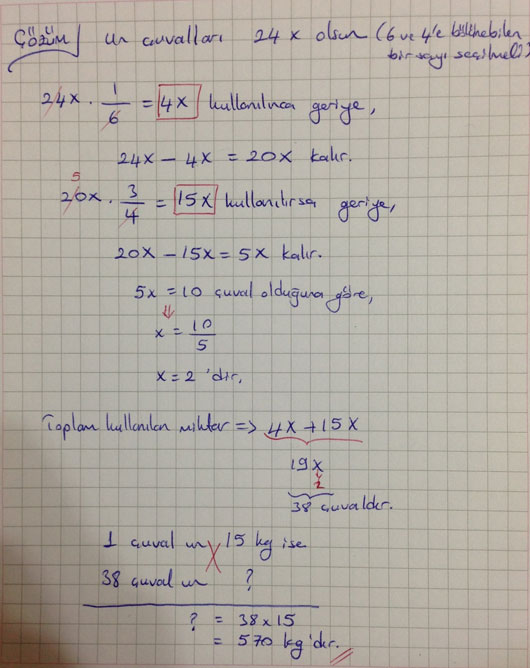 Çözüm / un çuvalları 24x olsun (6 ve 4'e bölünebilen
bir sayı seçilmeli)
24x . 1/6 = 4x kullanılınca geriye,
24x - 4x = 20x kalır.
5
20x . 3/4 = 15x kullanılırsa geriye,
20x - 15x = 5x kalır.
5x = 10 çuval olduğuna göre,
⇓
x = 10/5
x = 2 'dir.
Toplam kullanılan miktar => 4x + 15x
19x
2
38 çuvaldır.
1 çuval un 15 kg ise
38 çuval un ?
? = 38x15
= 570 kg'dır.